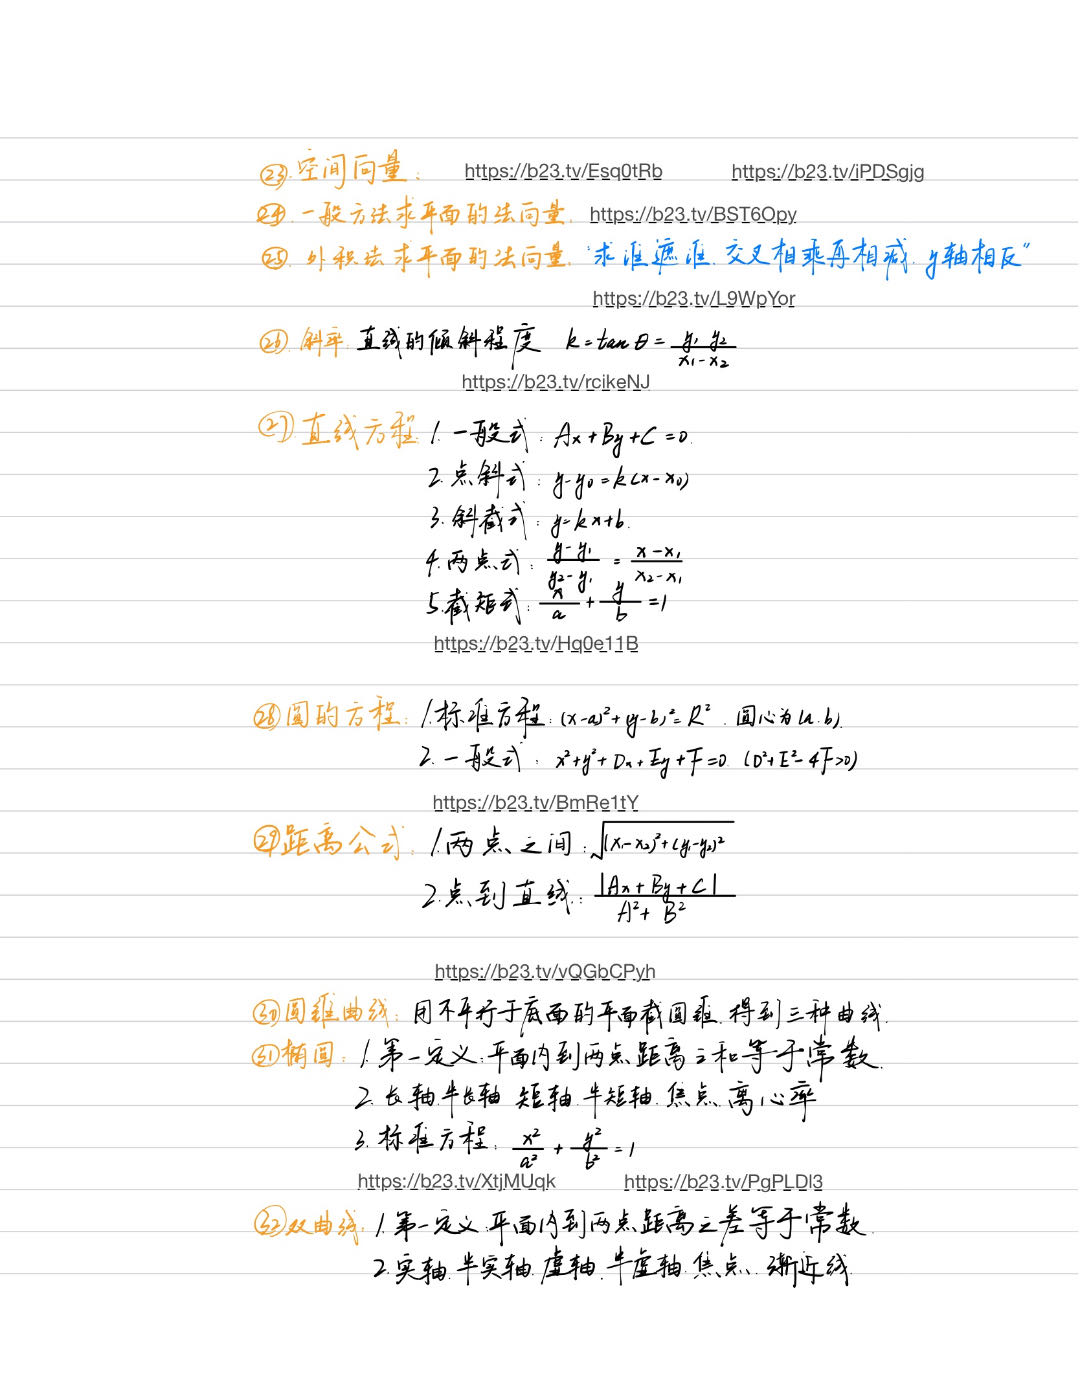 ㉓ 空间向量： https://b23.tv/Esq0tRb https://b23.tv/iPDSgjg
㉔ 一般方法求平面的法向量. https://b23.tv/BST6Opy
㉕ 外积法求平面的法向量. “求谁遮谁.交叉相乘再相减.y轴相反”
https://b23.tv/L9WpYor
㉖ 斜率. 直线的倾斜程度 k=tanθ=y₁ y₂/x₁-x₂
https://b23.tv/rcikeNJ
㉗ 直线方程 1.一般式：Ax+By+C=0.
2.点斜式：y-y₀=k(x-x₀)
3.斜截式：y=kx+b.
4.两点式：y-y₁/y₂-y₁ = x-x₁/x₂-x₁
5.截矩式：x/a+y/b=1
https://b23.tv/Hq0e11B
㉘ 圆的方程：1.标准方程：(x-a)²+(y-b)²=R². 圆心为(a.b).
2.一般式：x²+y²+Dx+Ey+F=0. (D²+E²-4F>0)
https://b23.tv/BmRe1tY
㉙ 距离公式：1.两点之间：√(x₁-x₂)²+(y₁-y₂)²
2.点到直线：|Ax+By+C|/A²+B²
https://b23.tv/vQGbCPyh
㉚ 圆锥曲线：用不平行于底面的平面截圆锥.得到三种曲线.
㉛ 椭圆：1.第一定义：平面内到两点距离之和等于常数.
2.长轴.半长轴 短轴.半短轴.焦点.离心率
3.标准方程：x²/a²+y²/b²=1
https://b23.tv/XtjMUqk https://b23.tv/PgPLDl3
㉜ 双曲线：1.第一定义：平面内到两点距离之差等于常数.
2.实轴.半实轴.虚轴.半虚轴.焦点.渐近线